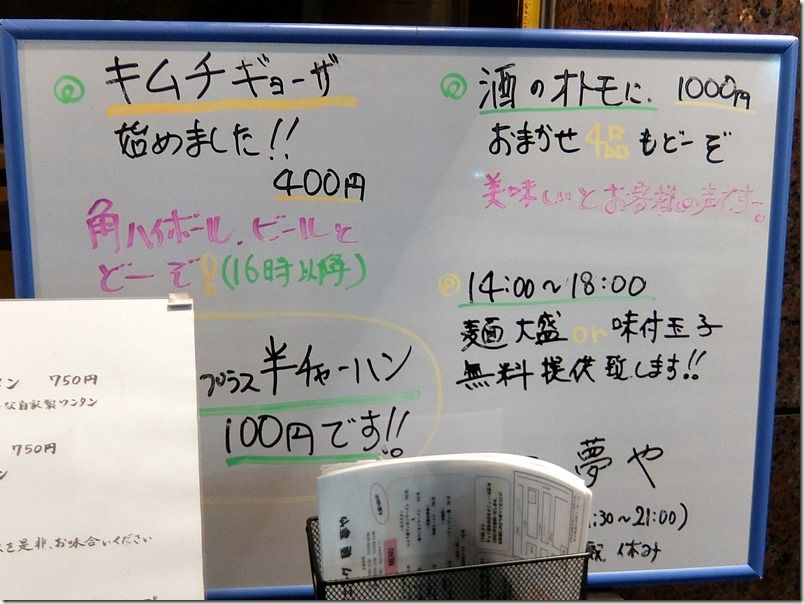 キムチギョーザ
始めました!!
400円
角ハイボール、ビールと
どーぞ!(16時以降)
プラス半チャーハン
100円です!!
酒のオトモに、 1000円
おまかせ4品もどーぞ
美味しいとお客様の声です。
14:00〜18:00
麺大盛or味付玉子
無料提供致します!!
夢や
:30〜21:00)
休み
750円
な自家製ワンタン
750円
ン
を是非、お味合いください
MENU